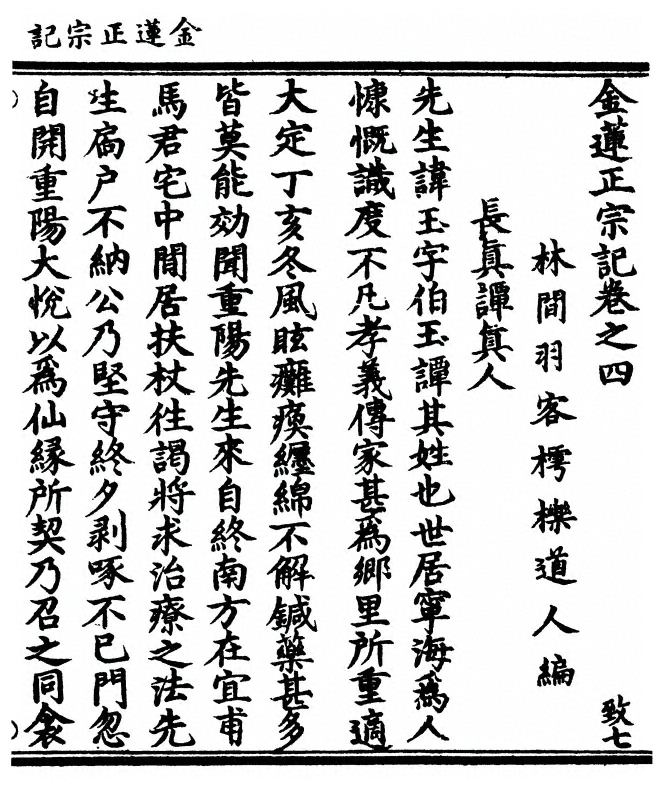 金蓮正宗記
金蓮正宗記卷之四 致七
林間羽客樗櫟道人編
長真譚真人
先生諱玉字伯玉譚其姓也世居寧海為人
慷慨識度不凡孝義傳家甚為鄉里所重適
大定丁亥冬風眩癱瘓纏綿不解鍼藥甚多
皆莫能効聞重陽先生來自終南方在宜甫
馬君宅中閒居扶杖徃謁將求治療之法先
生扃户不納公乃堅守終夕剥啄不已門忽
自開重陽大悅以為仙緣所契乃召之同衾